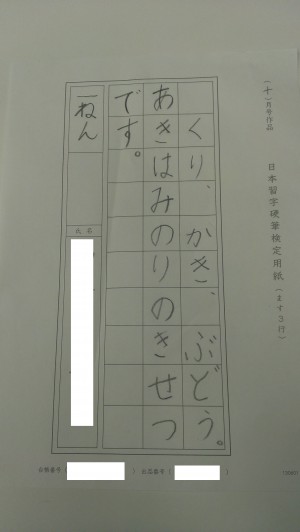 (十)月号作品
日本習字硬筆検定用紙(ます3日)
くり、かき、ぶどう。
あきはみのりのきせつ
です。
一ねん
氏名